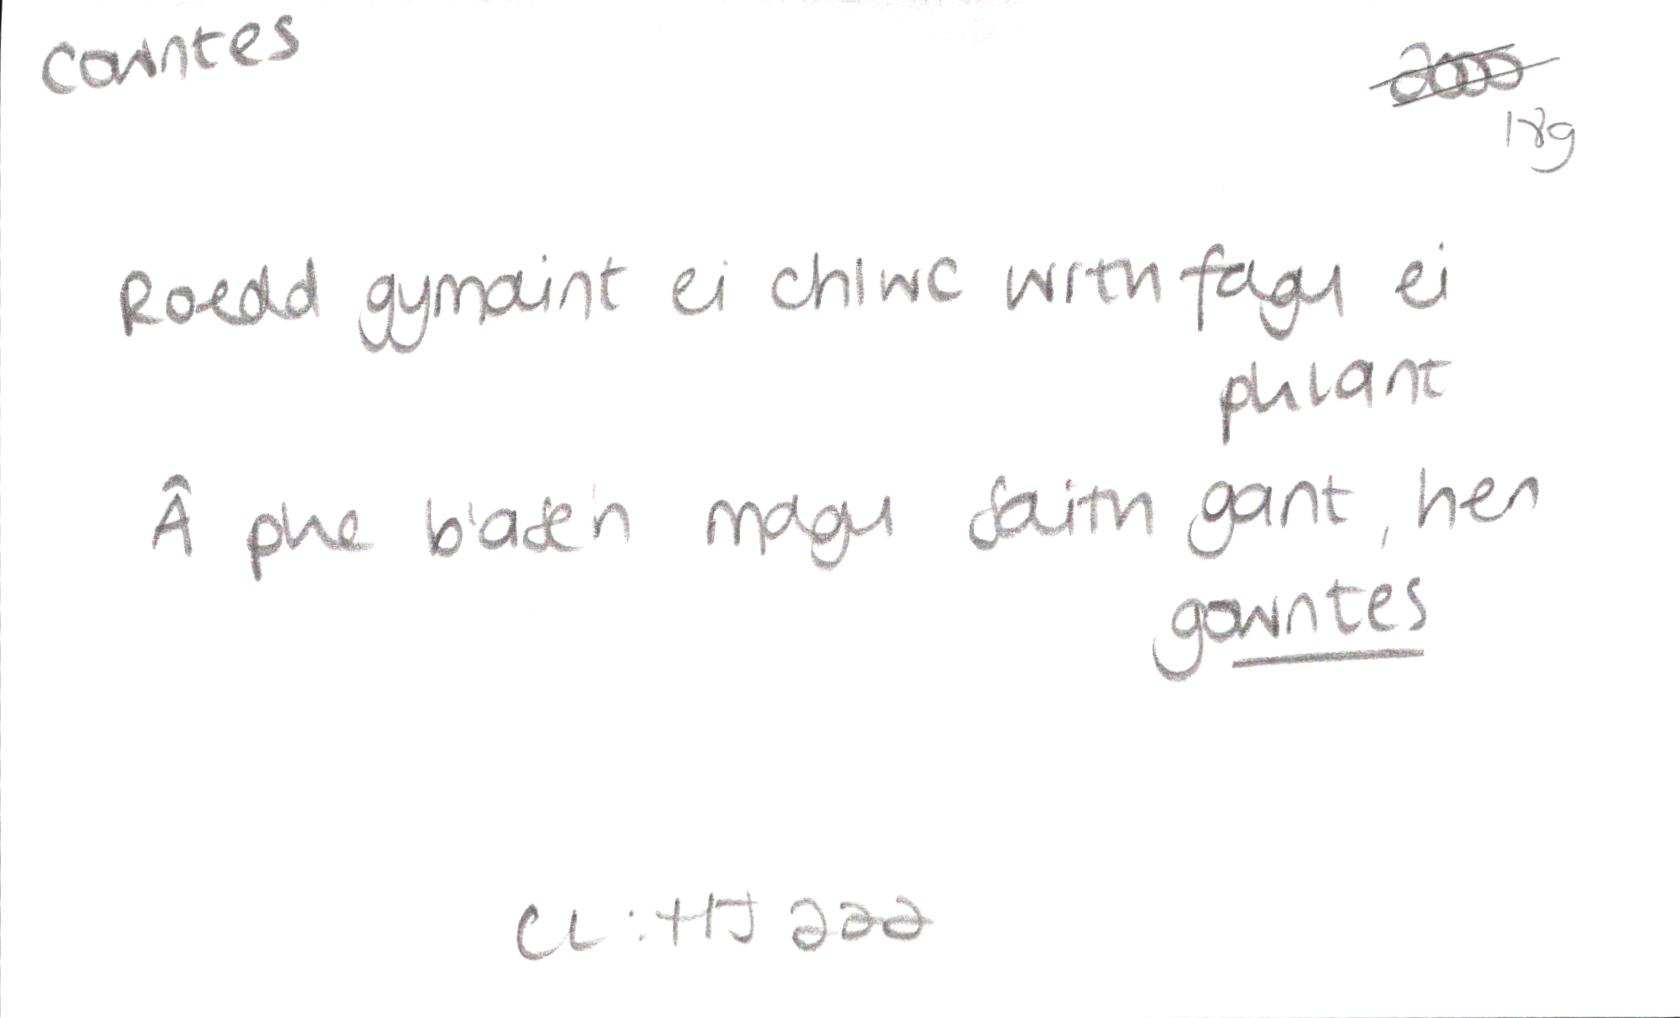 cowntes
2000
18g
Roedd gymaint ei chlwc wrth fagu ei
phlant
Â phe basen magu saith gant, hen
gowntes
CL : HJ 222